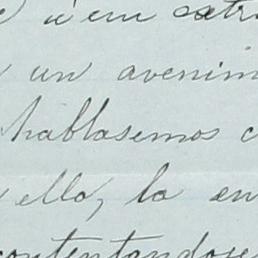 un avenim
hablasemos c
ello, la en
contentandose